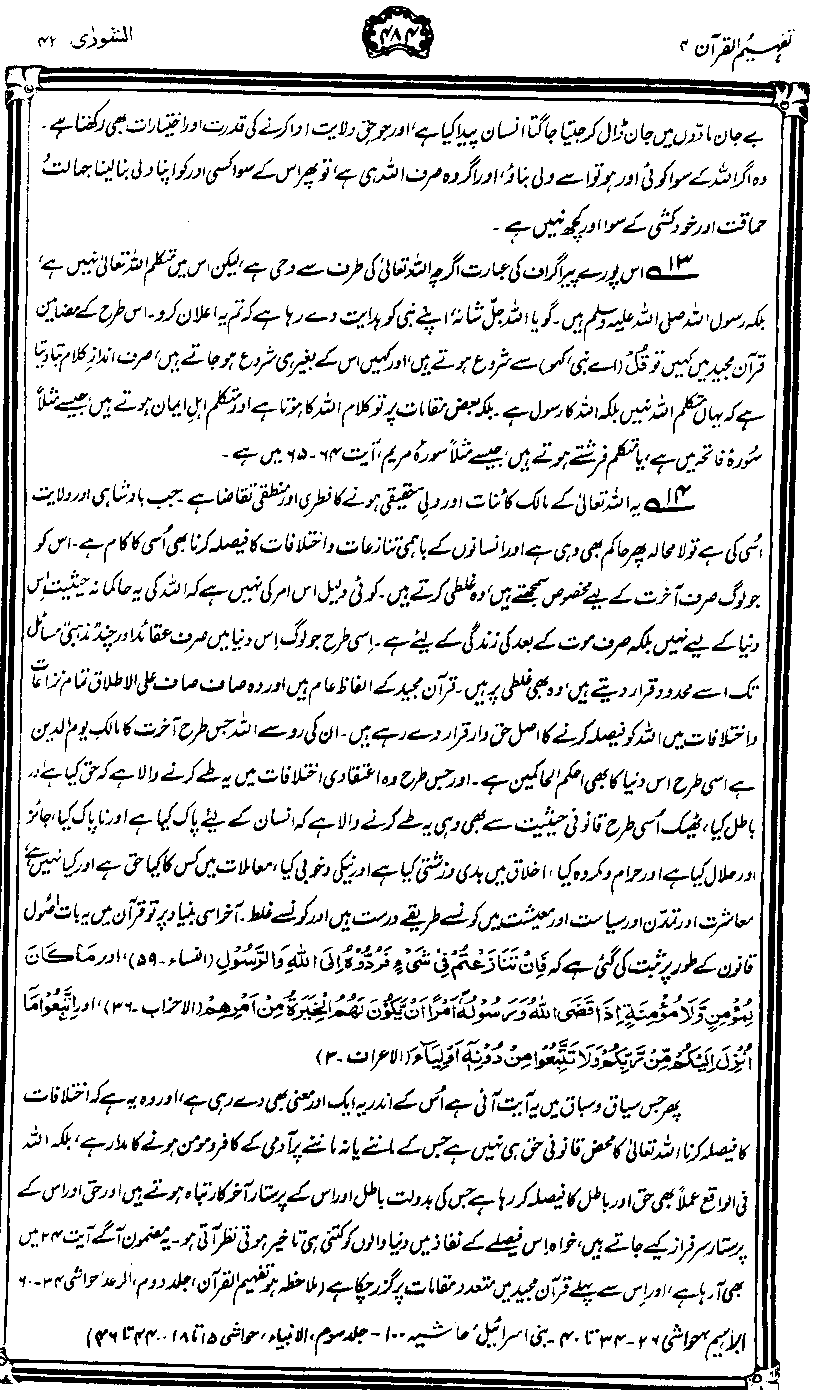 تفہیم القرآن ۴
۴۸۴
الشوریٰ ۴۲
بے جان مادّوں میں جان ڈال کر جیتا جاگتا انسان پیدا کیا ہے، اور جو حقِ ولایت ادا کرنے کی قدرت اور اختیارات بھی رکھتا ہے۔
وہ اگر اللہ کے سوا کوئی اور ہو تو اسے ولی بناؤ، اور اگر وہ صرف اللہ ہی ہے، تو پھر اس کے سوا کسی اور کو اپنا ولی بنا لینا جہالت
حماقت اور خودکشی کے سوا اور کچھ نہیں ہے۔
۱۳ اس پورے پیراگراف کی عبارت اگرچہ اللہ تعالیٰ کی طرف سے وحی ہے، لیکن اس میں متکلم اللہ تعالیٰ نہیں ہے،
بلکہ رسول اللہ صلی اللہ علیہ وسلم ہیں۔ گویا اللہ جل شانہٗ اپنے نبی کو ہدایت دے رہا ہے کہ تم یہ اعلان کرو۔ اس طرح کے مضامین
قرآن مجید میں کہیں تو قُلْ (اے نبی، کہو) سے شروع ہوتے ہیں، اور کہیں اس کے بغیر ہی شروع ہو جاتے ہیں، صرف اندازِ کلام بتا دیتا
ہے کہ یہاں متکلم اللہ نہیں بلکہ اللہ کا رسول ہے۔ بلکہ بعض مقامات پر تو کلام اللہ کا ہوتا ہے اور متکلم اہلِ ایمان ہوتے ہیں، جیسے مثلاً
سورۂ فاتحہ میں ہے، یا متکلم فرشتے ہوتے ہیں، جیسے مثلاً سورۂ مریم، آیت ۶۴-۶۵ میں ہے۔
۱۴ یہ اللہ تعالیٰ کے مالکِ کائنات اور ولیِ حقیقی ہونے کا فطری اور منطقی تقاضا ہے۔ جب بادشاہی اور ولایت
اُسی کی ہے تو لامحالہ پھر حاکم بھی وہی ہے اور انسانوں کے باہمی تنازعات و اختلافات کا فیصلہ کرنا بھی اُسی کا کام ہے۔ اس کو
جو لوگ صرف آخرت کے لیے مخصوص سمجھتے ہیں، وہ غلطی کرتے ہیں۔ کوئی دلیل اس امر کی نہیں ہے کہ اللہ کی یہ حاکمانہ حیثیت اس
دنیا کے لیے نہیں بلکہ صرف موت کے بعد کی زندگی کے لیئے ہے۔ اِسی طرح جو لوگ اِس دنیا میں صرف عقائد اور چند مذہبی مسائل
تک اسے محدود قرار دیتے ہیں، وہ بھی غلطی پر ہیں۔ قرآن مجید کے الفاظ عام ہیں اور وہ صاف صاف علی الاطلاق تمام نزاعات
و اختلافات میں اللہ کو فیصلہ کرنے کا اصل حق دار قرار دے رہے ہیں۔ ان کی رو سے اللہ جس طرح آخرت کا مالک یوم الدین
ہے اسی طرح اس دنیا کا بھی احکم الحاکمین ہے۔ اور جس طرح وہ اعتقادی اختلافات میں یہ طے کرنے والا ہے کہ حق کیا ہے اور
باطل کیا، ٹھیک اُسی طرح قانونی حیثیت سے بھی وہی یہ طے کرنے والا ہے کہ انسان کے لیئے پاک کیا ہے اور ناپاک کیا، جائز
اور حلال کیا ہے اور حرام و مکروہ کیا، اخلاق میں بدی و زشتی کیا ہے اور نیکی و خوبی کیا، معاملات میں کس کا کیا حق ہے اور کیا نہیں ہے،
معاشرت اور تمدّن اور سیاست اور معیشت میں کونسے طریقے درست ہیں اور کونسے غلط۔ آخر اسی بنیاد پر تو قرآن میں یہ بات اُصولِ
قانون کے طور پر ثبت کی گئی ہے کہ فَاِنْ تَنَازَعْتُمْ فِیْ شَیْءٍ فَرُدُّوْهُ اِلَی اللّٰهِ وَالرَّسُوْلِ (النساء-۵۹)، اور مَا كَانَ
لِمُؤْمِنٍ وَّلَا مُؤْمِنَةٍ اِذَا قَضَی اللّٰهُ وَرَسُوْلُهٗٓ اَمْرًا اَنْ يَّكُوْنَ لَهُمُ الْخِيَرَةُ مِنْ اَمْرِهِمْ (الاحزاب-۳۶)، اور اِتَّبِعُوْا مَا
اُنْزِلَ اِلَيْكُمْ مِّنْ رَّبِّكُمْ وَلَا تَتَّبِعُوْا مِنْ دُوْنِهٖٓ اَوْلِيَآءَ (الاعراف-۳)
پھر جس سیاق و سباق میں یہ آیت آئی ہے اُس کے اندر یہ ایک اور معنی بھی دے رہی ہے، اور وہ یہ ہے کہ اختلافات
کا فیصلہ کرنا اللہ تعالیٰ کا محض قانونی حق ہی نہیں ہے جس کے ماننے یا نہ ماننے پر آدمی کے کافر و مومن ہونے کا مدار ہے، بلکہ اللہ
فی الواقع عملاً بھی حق اور باطل کا فیصلہ کر رہا ہے جس کی بدولت باطل اور اس کے پرستار آخر کار تباہ ہوتے ہیں اور حق اور اس کے
پرستار سرفراز کیے جاتے ہیں، خواہ اِس فیصلے کے نفاذ میں دنیا والوں کو کتنی ہی تاخیر ہوتی نظر آتی ہو۔ یہ مضمون آگے آیت ۲۴ میں
بھی آرہا ہے، اور اِس سے پہلے قرآن مجید میں متعدد مقامات پر گزر چکا ہے (ملاحظہ ہو تفہیم القرآن، جلد دوم، الرعد حواشی ۳۴-۶۰
ابراہیم حواشی ۲۶-۳۴ تا ۴۰- بنی اسرائیل، حاشیہ ۱۰۰- جلد سوم، الانبیاء، حواشی ۱۵ تا ۱۸-۴۴ تا ۴۶)